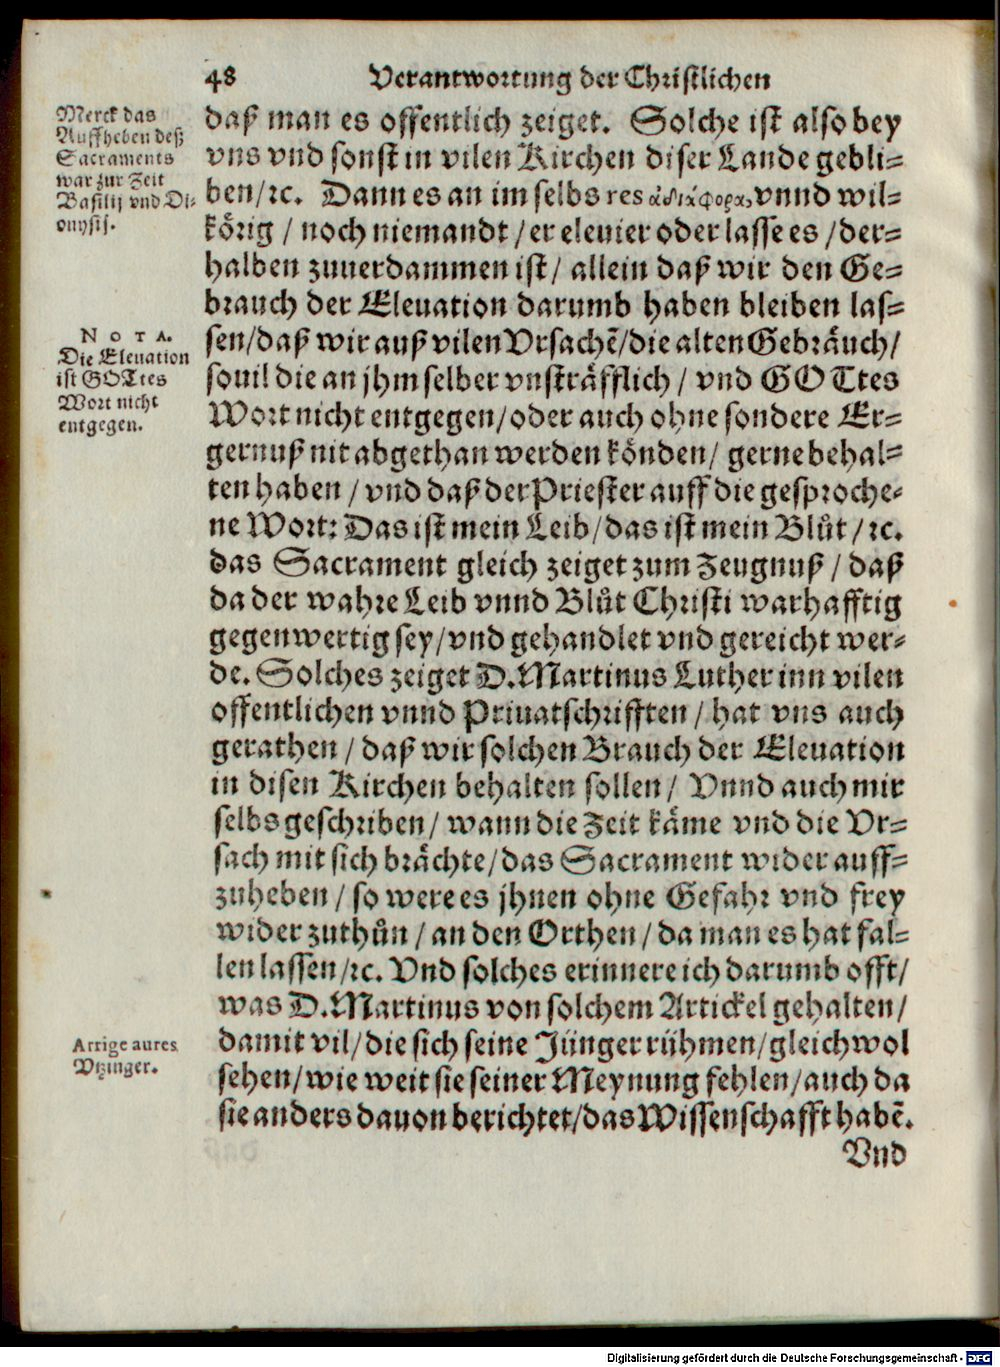 48 Verantwortung der Christlichen
Merck das
Auffheben deß
Sacraments
war zur Zeit
Basilij vnd Di-
onysij.
daß man es offentlich zeiget. Solche ist also bey
vns vnd sonst in vilen Kirchen diser Lande gebli-
ben/ꝛc. Dann es an im selbs res ἀδιάφορα, vnnd wil-
körig / noch niemandt / er eleuier oder lasse es / der-
halben zuuerdammen ist / allein daß wir den Ge-
brauch der Eleuation darumb haben bleiben las-
NOTA.
Die Eleuation
ist GOTtes
Wort nicht
entgegen.
sen/daß wir auß vilen Vrsachẽ/die alten Gebräuch/
souil die an jhm selber vnsträfflich / vnd GOTtes
Wort nicht entgegen/oder auch ohne sondere Er-
gernuß nit abgethan werden könden/ gerne behal-
ten haben / vnd daß der Priester auff die gesproche-
ne Wort: Das ist mein Leib/das ist mein Blůt/ꝛc.
das Sacrament gleich zeiget zum Zeugnuß / daß
da der wahre Leib vnnd Blůt Christi warhafftig
gegenwertig sey/vnd gehandlet vnd gereicht wer-
de. Solches zeiget D. Martinus Luther inn vilen
offentlichen vnnd Priuatschrifften / hat vns auch
gerathen / daß wir solchen Brauch der Eleuation
in disen Kirchen behalten sollen / Vnnd auch mir
selbs geschriben/ wann die Zeit käme vnd die Vr-
sach mit sich brächte/das Sacrament wider auff-
zuheben / so were es jhnen ohne Gefahr vnd frey
wider zuthůn / an den Orthen / da man es hat fal-
len lassen/ꝛc. Vnd solches erinnere ich darumb offt/
was D. Martinus von solchem Artickel gehalten/
Arrige aures
Vtzinger.
damit vil/die sich seine Jünger rühmen/gleichwol
sehen/wie weit sie seiner Meynung fehlen/auch da
sie anders dauon berichtet/das Wissenschafft habẽ.
Vnd
Digitalisierung gefördert durch die Deutsche Forschungsgemeinschaft - DFG